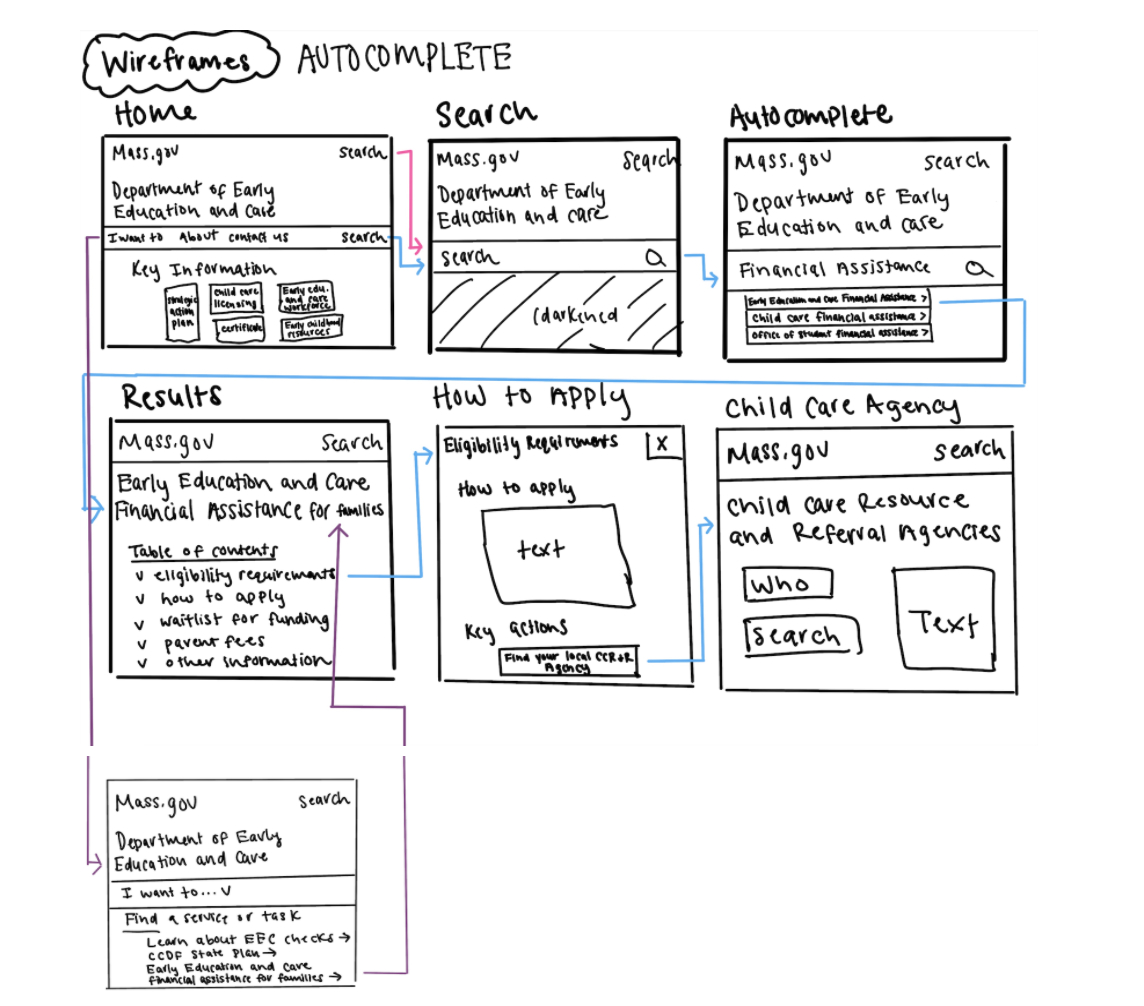 Wireframes AUTOCOMPLETE
Home
Mass.gov search
Department of Early
Education and Care
I want to About contact us search
Key Information
strategic
action
plan
child care
licensing
Early edu.
and care
workforce
certificate
Early childhood
resources
Search
Mass.gov Search
Department of Early
Education and care
search
(darkened
Autocomplete
Mass.gov search
Department of Early
Education and care
Financial Assistance
Early Education and Care Financial Assistance >
Child care financial assistance >
Office of Student financial assistance >
Results
Mass.gov Search
Early Education and Care
Financial Assistance for families
Table of contents
v eligibility requirements
v how to apply
v waitlist for funding
v parent fees
v other information
How to Apply
Eligibility Requirements X
How to apply
text
Key actions
Find your local CCR+R
Agency
Child Care Agency
Mass.gov search
Child Care Resource
and Referral Agencies
Who
Search
Text
Mass.gov search
Department of Early
Education and Care
I want to... v
Find a service or task
Learn about EEC checks →
CCDF State Plan →
Early Education and Care
financial assistance for families →